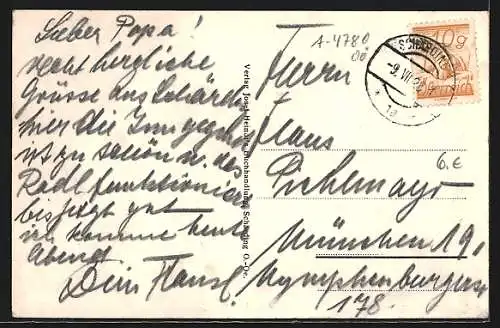 Lieber Papa!
recht herzliche
Grüsse aus Schärding
hier die Inngegend
ist zu schön u. das
Radl funktioniert
bis jetzt gut
ich komme heute
Abend
Dein Hansl
A-4780
Verlag Josef Heindl's Buchhandlung, Schärding O.-Oe.
Herrn
Hans
Pichlmayr
München 19,
Nymphenburgerstr
178.
10g
-9.VII
6.€